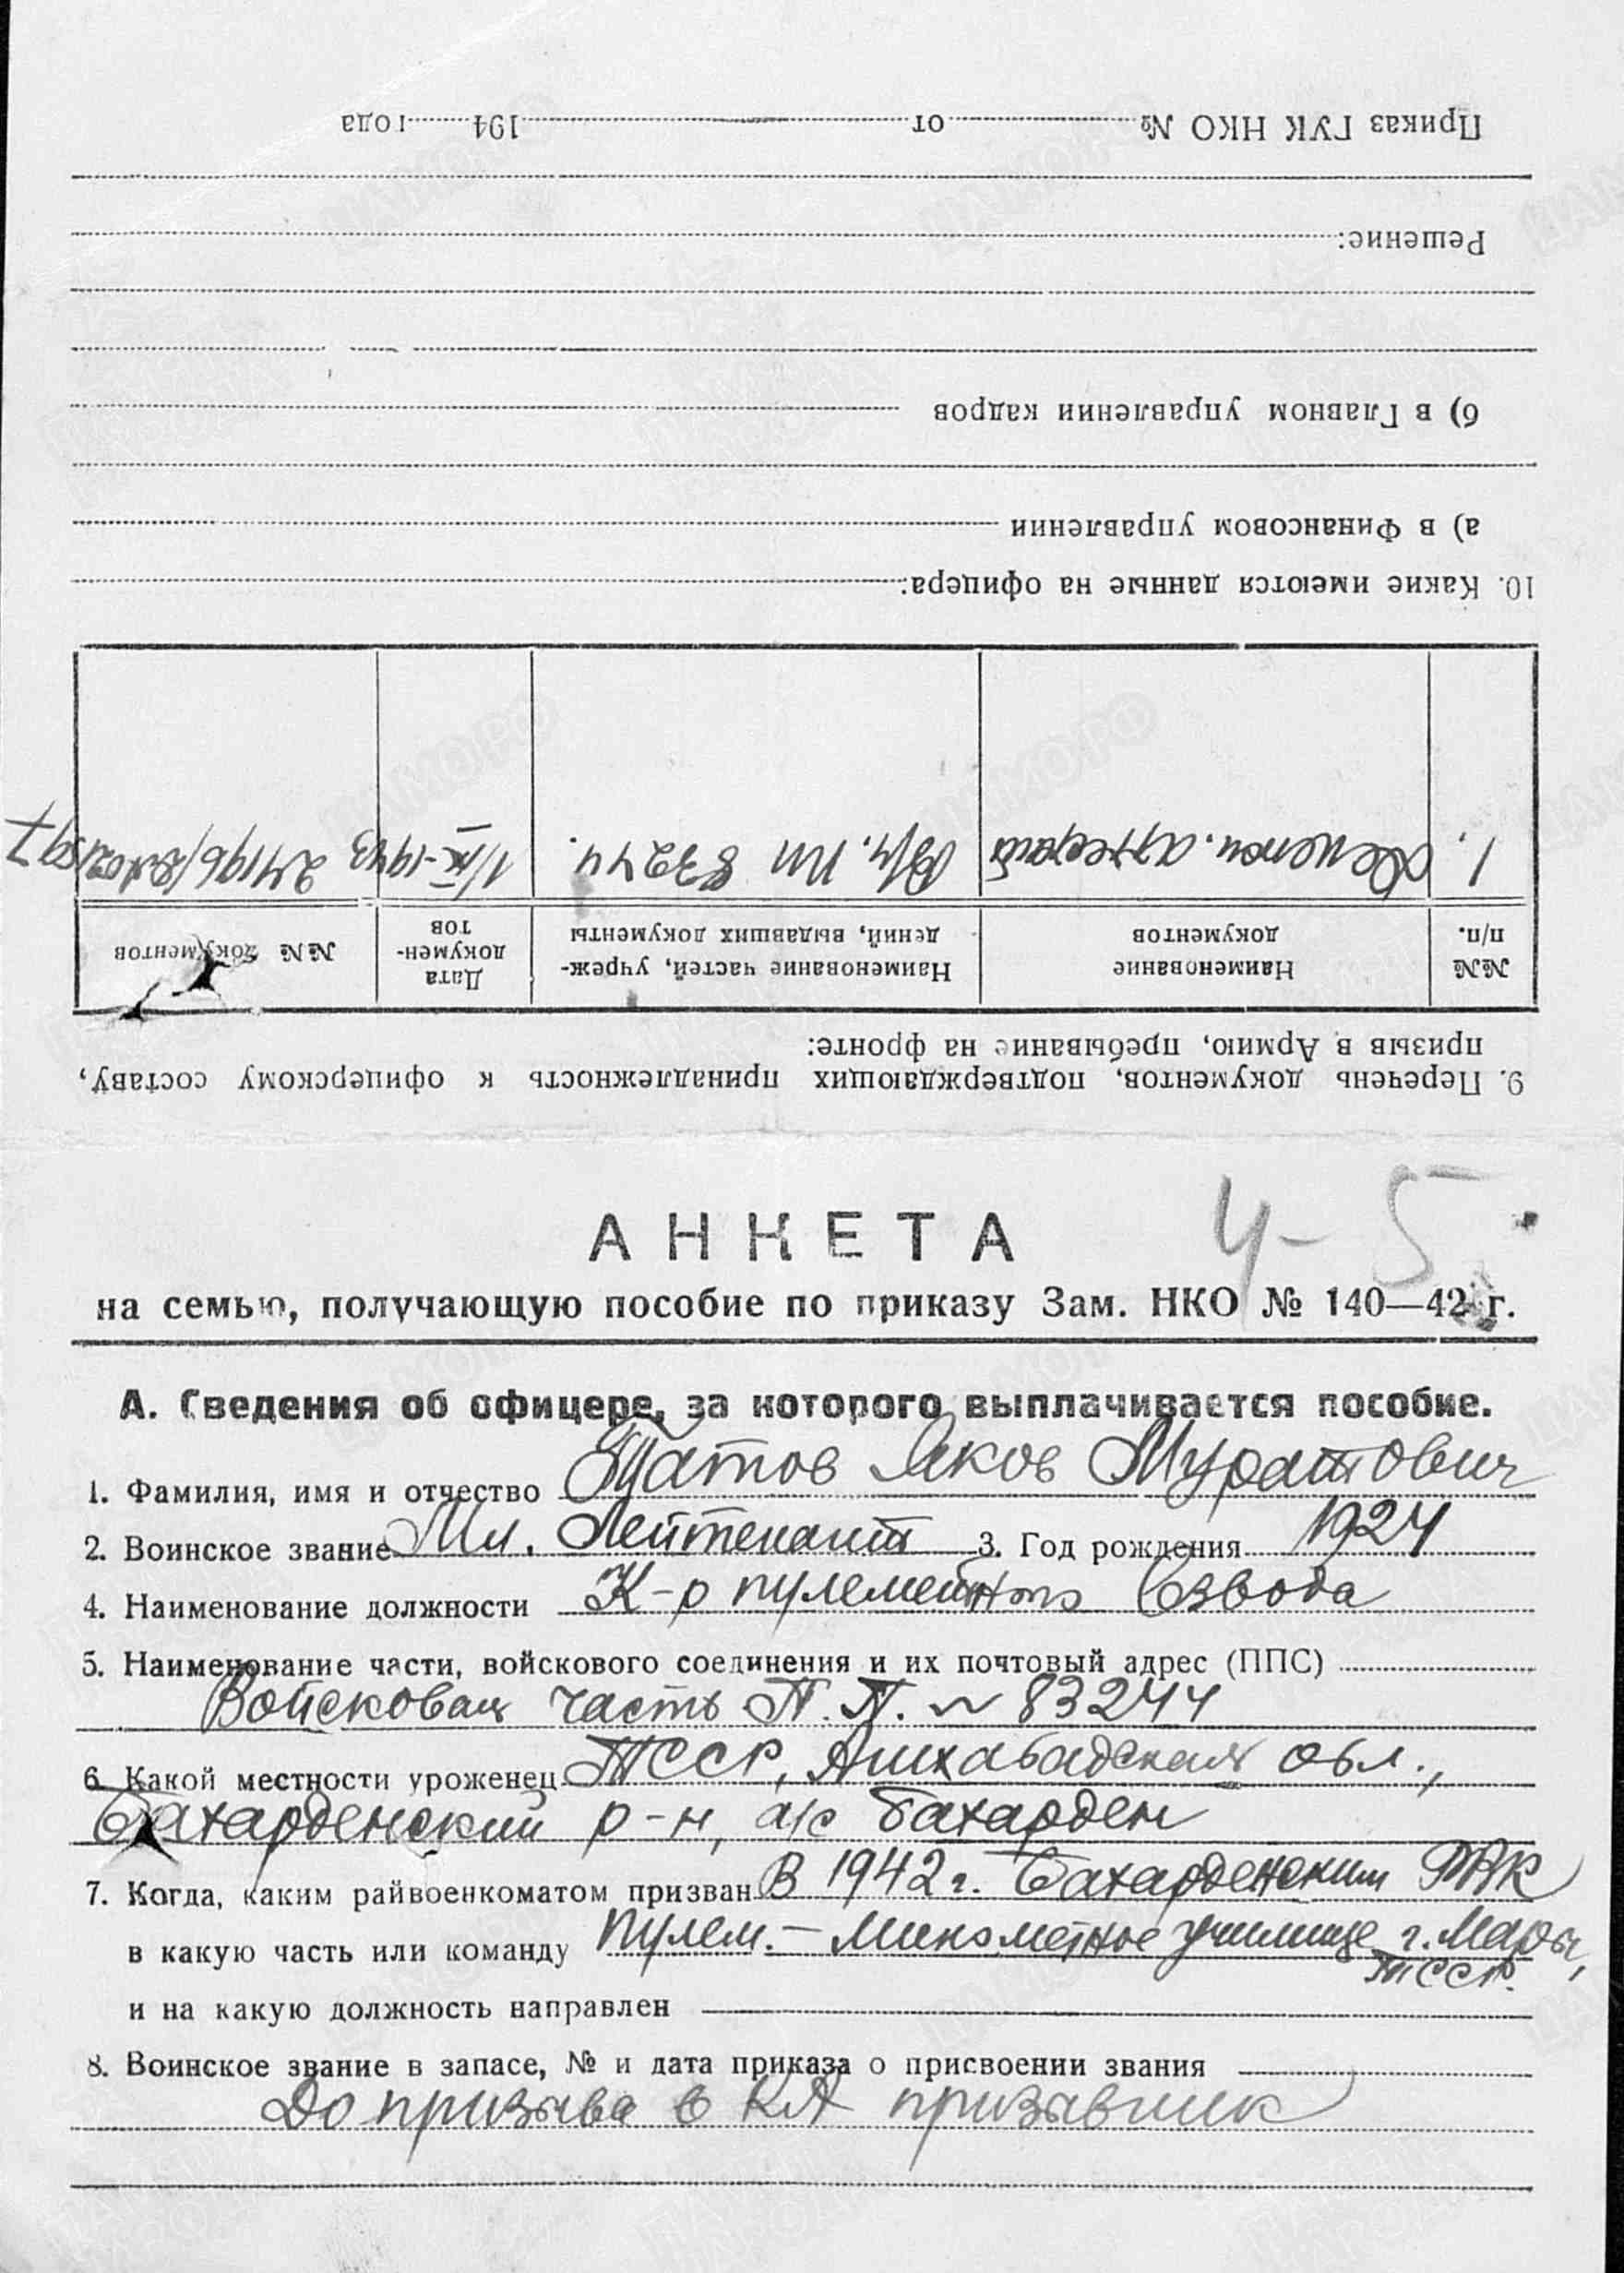 АНКЕТА
4-5
на семью, получающую пособие по приказу Зам. НКО № 140—42 г.
А. Сведения об офицере, за которого выплачивается пособие.
1. Фамилия, имя и отчество Татов Яков Муратович
2. Воинское звание Мл. Лейтенант 3. Год рождения 1924
4. Наименование должности К-р пулеметн Взвода
5. Наименование части, войскового соединения и их почтовый адрес (ППС)
Войсковая часть П.П. № 83244
6. Какой местности уроженец ТССР, Ашхабадская обл.,
Бахарденский р-н, а/с Бахарден
7. Когда, каким райвоенкоматом призван В 1942 г. Бахарденским РВК
в какую часть или команду Пулем.-Минометное училище г. Мары,
ТССР.
и на какую должность направлен
8. Воинское звание в запасе, № и дата приказа о присвоении звания
До призыва в КА призывник
9. Перечень документов, подтверждающих принадлежность к офицерскому составу,
призыв в Армию, пребывание на фронте:
№№ п/п. Наименование документов Наименование частей, учреждений, выдавших документы Дата документов №№ документов
1. Денежн. аттестат В/ч. ПП 83244. 1/IX-1943
10. Какие имеются данные на офицера:
а) в Финансовом управлении
б) в Главном управлении кадров
Решение:
Приказ ГУК НКО № от 194 года